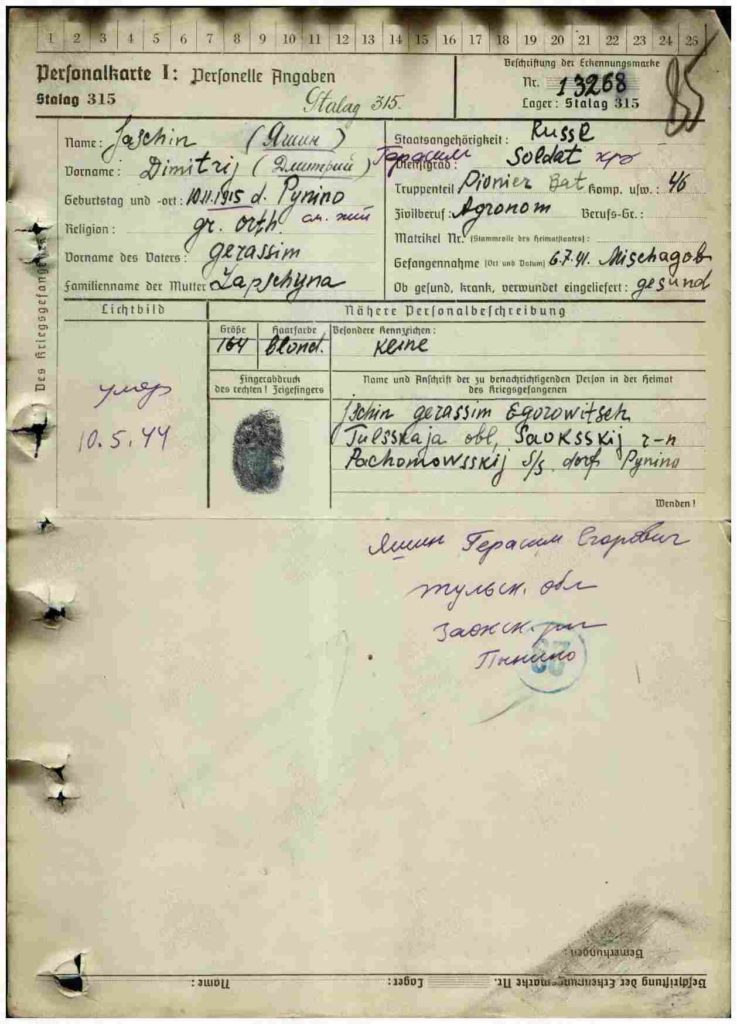 1 2 3 4 5 6 7 8 9 10 11 12 13 14 15 16 17 18 19 20 21 22 23 24 25
Personalkarte I: Personelle Angaben
Stalag 315
Stalag 315.
Beschriftung der Erkennungsmarke
Nr. 13268
Lager: Stalag 315
85
Des Kriegsgefangenen
Name: Jaschin (Яшин)
Vorname: Dimitrij (Дмитрий) Герасим
Geburtstag und -ort: 10.11.1915 d. Pynino
Religion: gr. orth.
Vorname des Vaters: gerassim
Familienname der Mutter: Lapschyna
Staatsangehörigkeit: Russe
Dienstgrad: Soldat
Truppenteil Pionier Bat Komp. usw.: 46
Zivilberuf: Agronom Berufs-Gr.:
Matrikel Nr. (Stammrolle des Heimatstaates):
Gefangennahme (Ort und Datum) 6.7.41. Mischagob
Ob gesund, krank, verwundet eingeliefert: gesund
Lichtbild
умер
10.5.44
Nähere Personalbeschreibung
Größe Haarfarbe Besondere Kennzeichen:
164 blond. Keine
Fingerabdruck
des rechten! Zeigefingers
Name und Anschrift der zu benachrichtigenden Person in der Heimat
des Kriegsgefangenen
Jschin gerassim Egorowitsch
Tulsskaja obl, Saoksskij r-n
Pachomowsskij s/s dorf Pynino
Wenden!
Яшин Герасим Егорович
Тульск. обл
Заокск. рн
Пынино
Bemerkungen:
Beschriftung der Erkennungsmarke Nr. Lager: Name: